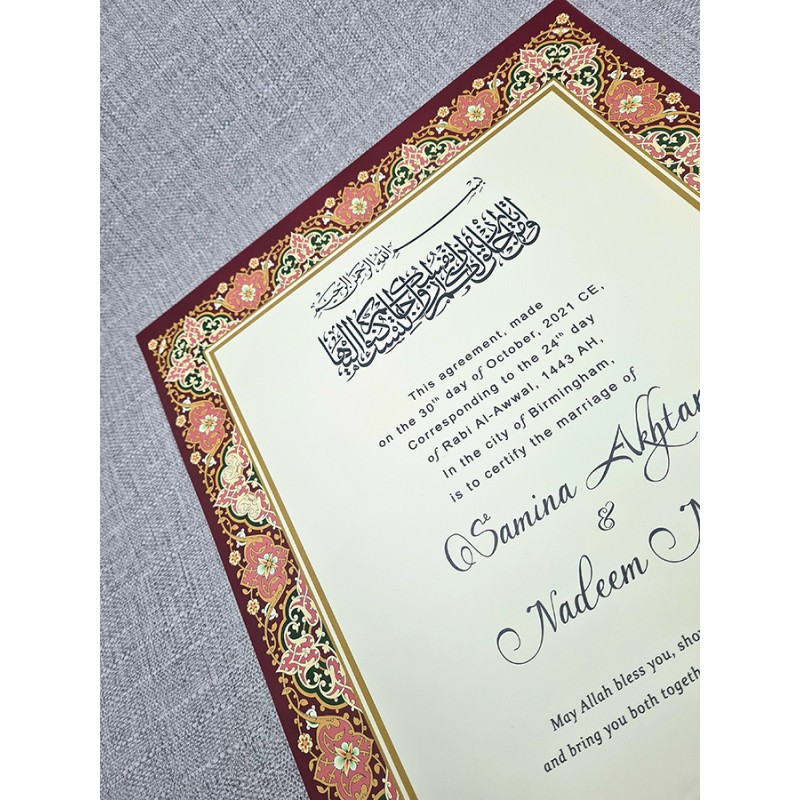 بسم الله الرحمن الرحيم
ومن آياته أن خلق لكم من أنفسكم أزواجا لتسكنوا إليها
This agreement, made
on the 30th day of October, 2021 CE,
Corresponding to the 24th day
of Rabi Al-Awwal, 1443 AH,
In the city of Birmingham,
is to certify the marriage of
Samina Akhtar
&
Nadeem
May Allah bless you,
and bring you both